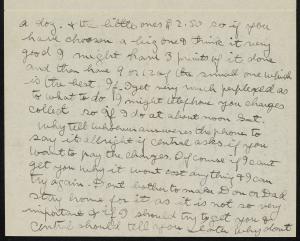 a doz. & the little ones $2.50 so if you
have choosen a big one & think it very
good I might have 3 prints of it done
and then have 9 or 12 of the small one which
is the best. If I get very much perplexed as
to what to do I might telephone you charges
collect so if I do at about noon Sat.
Why tell whoever answeres the phone to
say it allright if central asks if you
want to pay the charges. Of course if I cant
get you why it wont cost any thing & I can
try again. Dont bother to make Don or Dad
stay home for it as it is not so very
important & if I should try to get you &
central should tell you later why dont